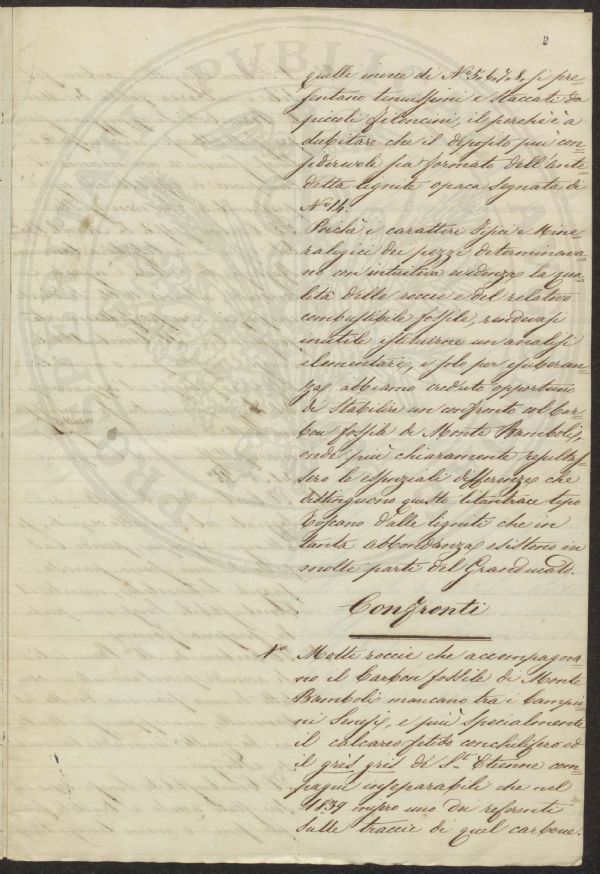 2
quelli invece di Nº 5, 6, 7, 8, si pre=
sentano tenuissimi e staccati da
piccoli filoncini, il perchè è a
dubitare che il deposito più con=
siderevole sia formato dell'ante
detta lignite opaca segnata di
Nº 14.
Poichè i caratteri tipici e Mine=
ralogici dei pezzi determinava=
no con intuitiva evidenza la qua=
lità delle roccie e del relativo
combustibile fossile rendevasi
inutile istituirne un analisi
elementare, e solo per esuberan=
za abbiamo creduto opportuno
di stabilire un confronto col Car=
bon fossile di Monte Bamboli,
onde più chiaramente resultas=
sero le essenziali differenze che
distinguono questo litantrace tipo
Toscano dalle ligniti che in
tanta abbondanza esistono in
molte parti del Granducato.
Confronti
1º Molte roccie che accompagna=
no il Carbon fossile di Monte
Bamboli mancano tra i Campio=
ni Senesi, e più specialmente
il calcareo fetido conchilifero ed
il grès gris di St. Etienne com=
pagni inseparabili che nel
1839 misero uno dei referenti
sulle traccie di quel carbone.
PVBLIC